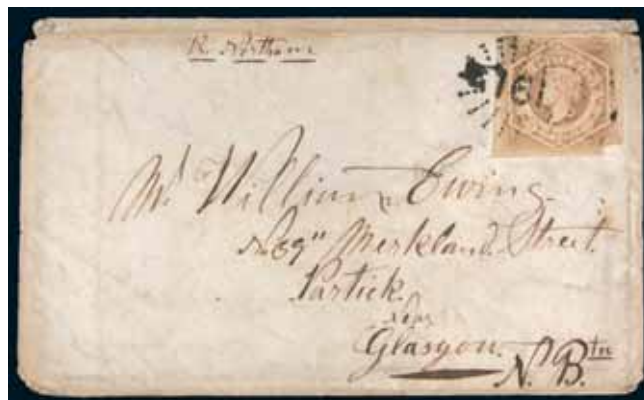 Northam
761
Mr. William Ewing.
No 69" Merkland Street.
Partick.
near
Glasgow.
N. Btn